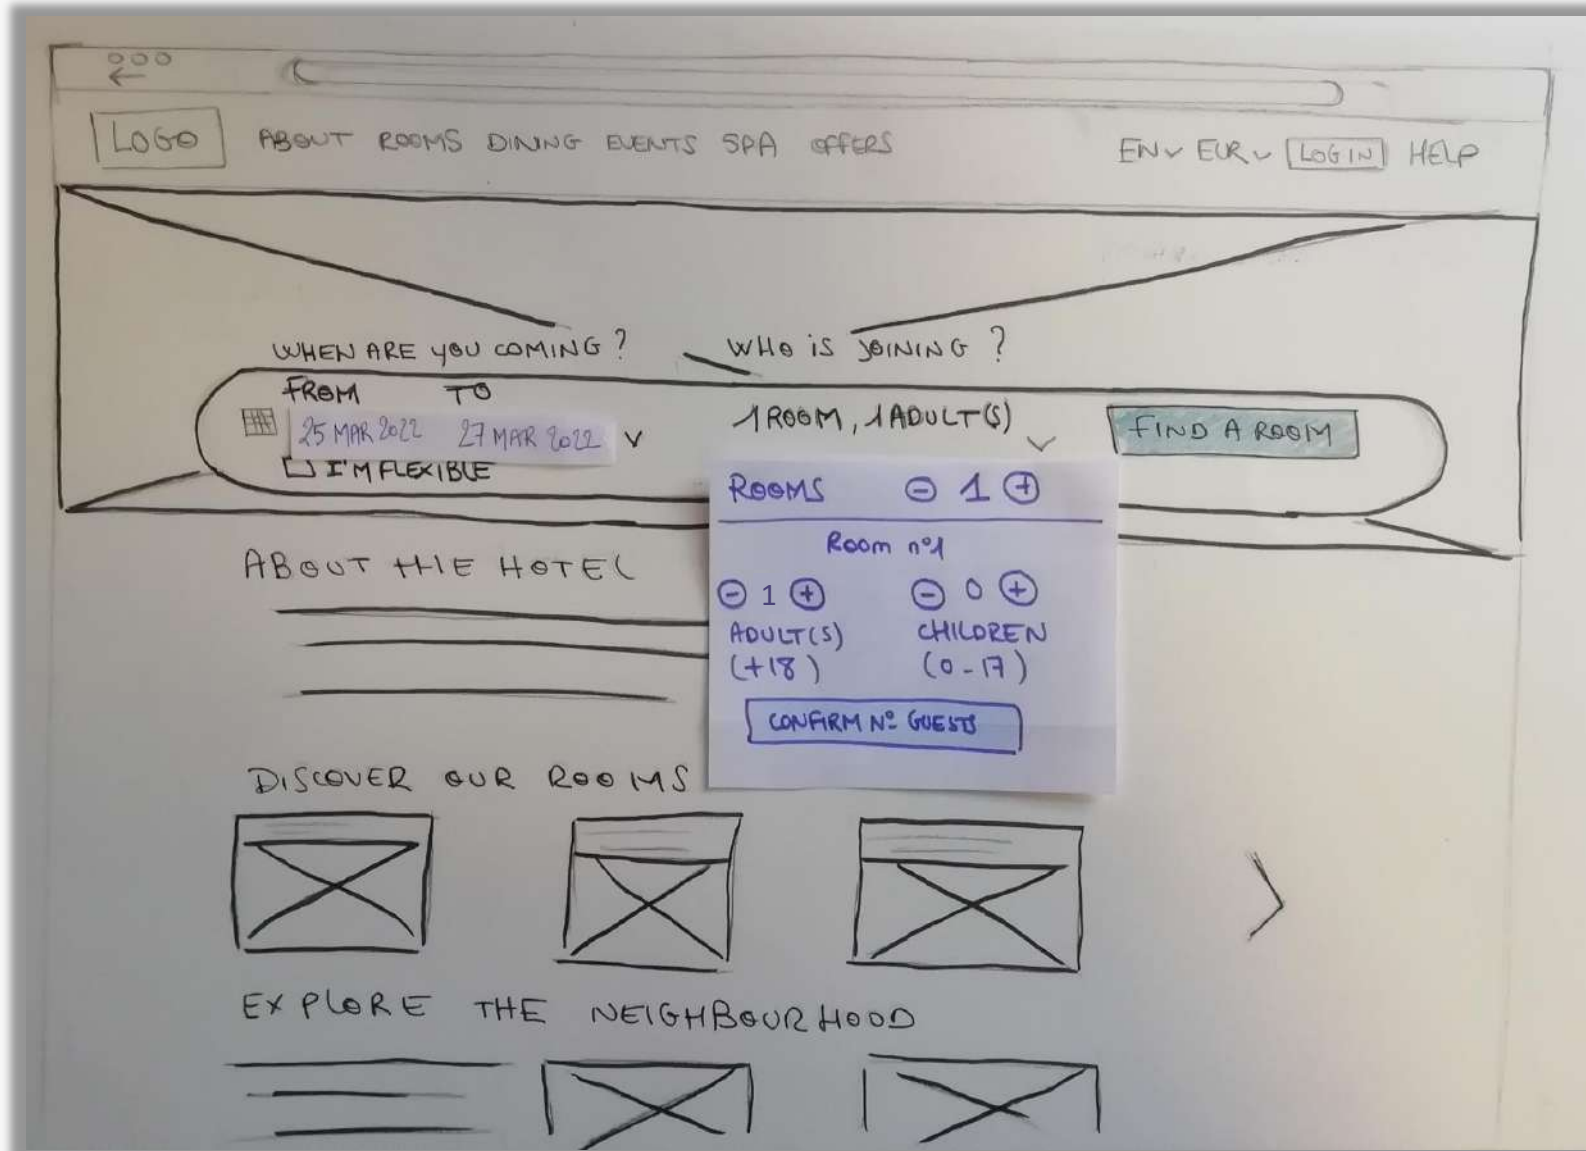 LOGO ABOUT ROOMS DINING EVENTS SPA OFFERS EN EUR LOGIN HELP
WHEN ARE YOU COMING? WHO IS JOINING?
FROM TO
25 MAR 2022 27 MAR 2022 1 ROOM, 1 ADULT(S) FIND A ROOM
I'M FLEXIBLE
ROOMS - 1 +
Room nº1
- 1 + - 0 +
ADULT(S) CHILDREN
(+18) (0-17)
CONFIRM Nº GUESTS
ABOUT THE HOTEL
DISCOVER OUR ROOMS
EXPLORE THE NEIGHBOURHOOD